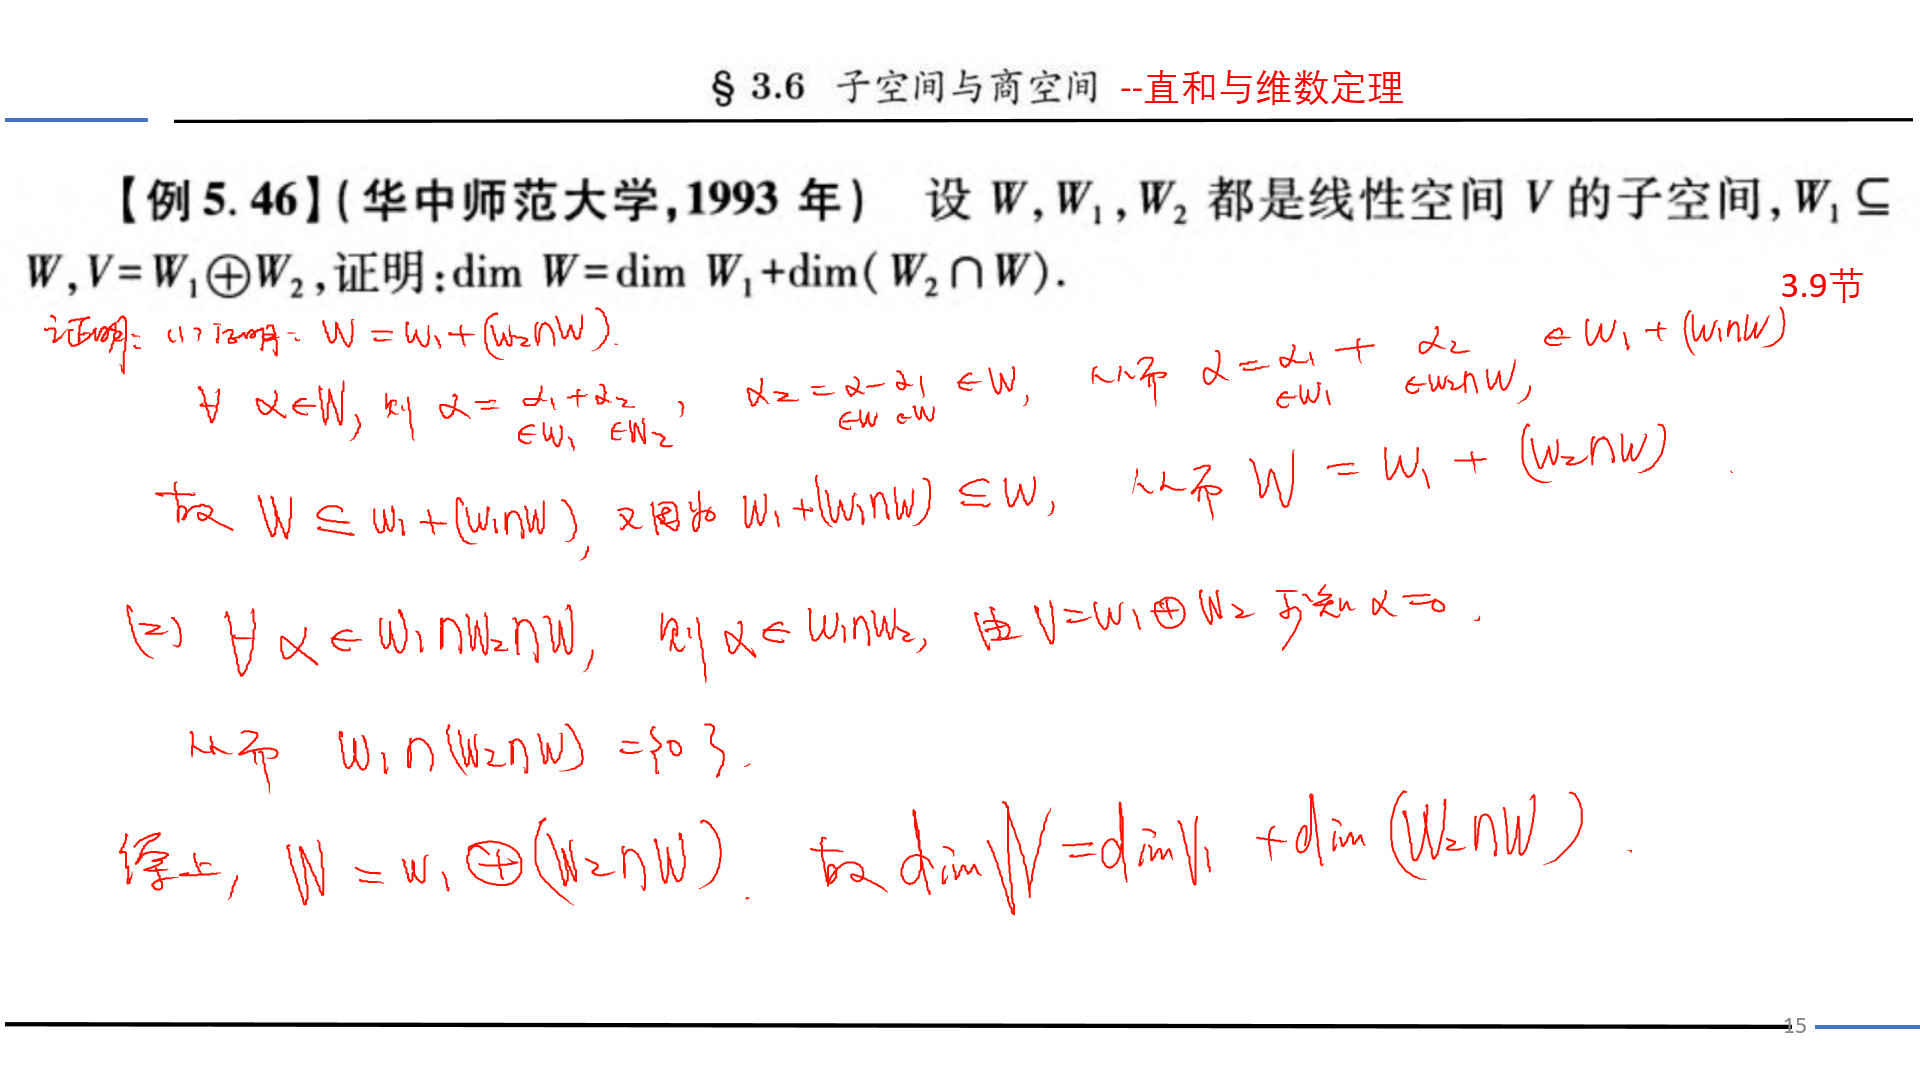 § 3.6 子空间与商空间 --直和与维数定理
【例 5.46】(华中师范大学,1993 年) 设 W,W₁,W₂ 都是线性空间 V 的子空间,W₁⊆
W,V=W₁⊕W₂,证明:dim W=dim W₁+dim(W₂∩W).
3.9节
证明: (1) 证明: W = W₁+(W₂∩W).
∀ α∈W, 则 α = α₁+α₂, α₂ = α-α₁ ∈W, 从而 α = α₁ + α₂ ∈ W₁ + (W₁∩W)
∈W₁ ∈W₂ ∈W ∈W ∈W₁ ∈W₂∩W,
故 W ⊆ W₁+(W₁∩W), 又因为 W₁+(W₁∩W) ⊆ W, 从而 W = W₁ + (W₂∩W).
(2) ∀ α ∈ W₁∩W₂∩W, 则 α ∈ W₁∩W₂, 由 V=W₁⊕W₂ 可知 α=0.
从而 W₁∩(W₂∩W) ={0}.
综上, W = W₁⊕(W₂∩W). 故 dim W = dim V₁ + dim (W₂∩W).
15